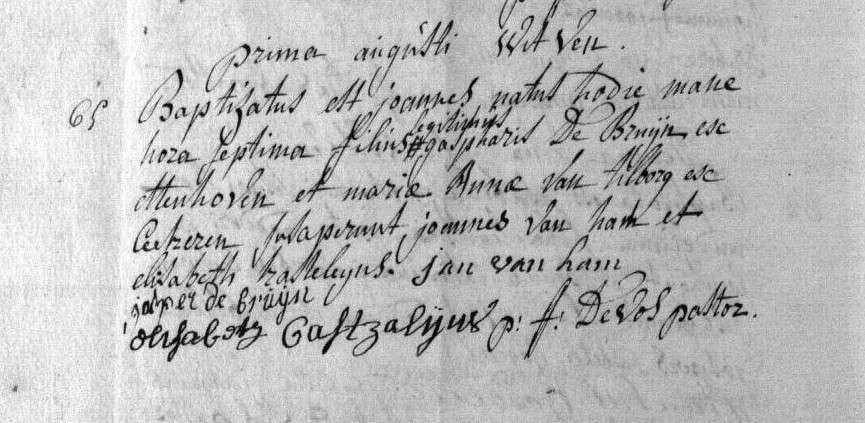 prima augusti Witven.
65 Baptisatus est joannes natus hodie mane
hora septima filius legitimus gaspharis De Bruijn esc
ettenhoven et mariæ Annæ van tilborg esc
susceperunt joannes van ham et
elisabeth kasteleyns. jan van ham
jasper de bruijn
elisabetz Castzalijns p: f: De Vos pastor.